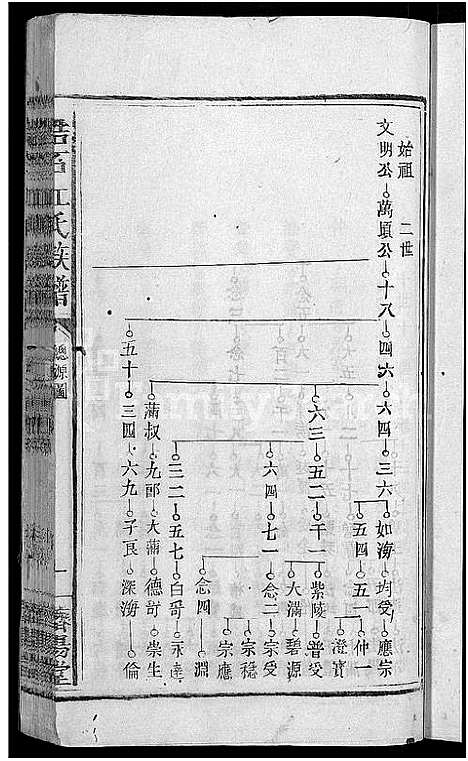 始祖 二世
文明公 萬頃公 十八 四六 六四 三六 如海 均受 應宗
五四 五一 仲一
澄寳
六三 五二 千一 紫陵 普受
大滿 碧源
六四 七一 念二 宗受
宗穏
宗應
念四 淵
三二 五七 白哥 永達
蒲叔 九郎 大蒲 德哥 崇生
五十 三四 六九 子良 深湧 倫
江氏族譜
總源圖
一
濟陽堂